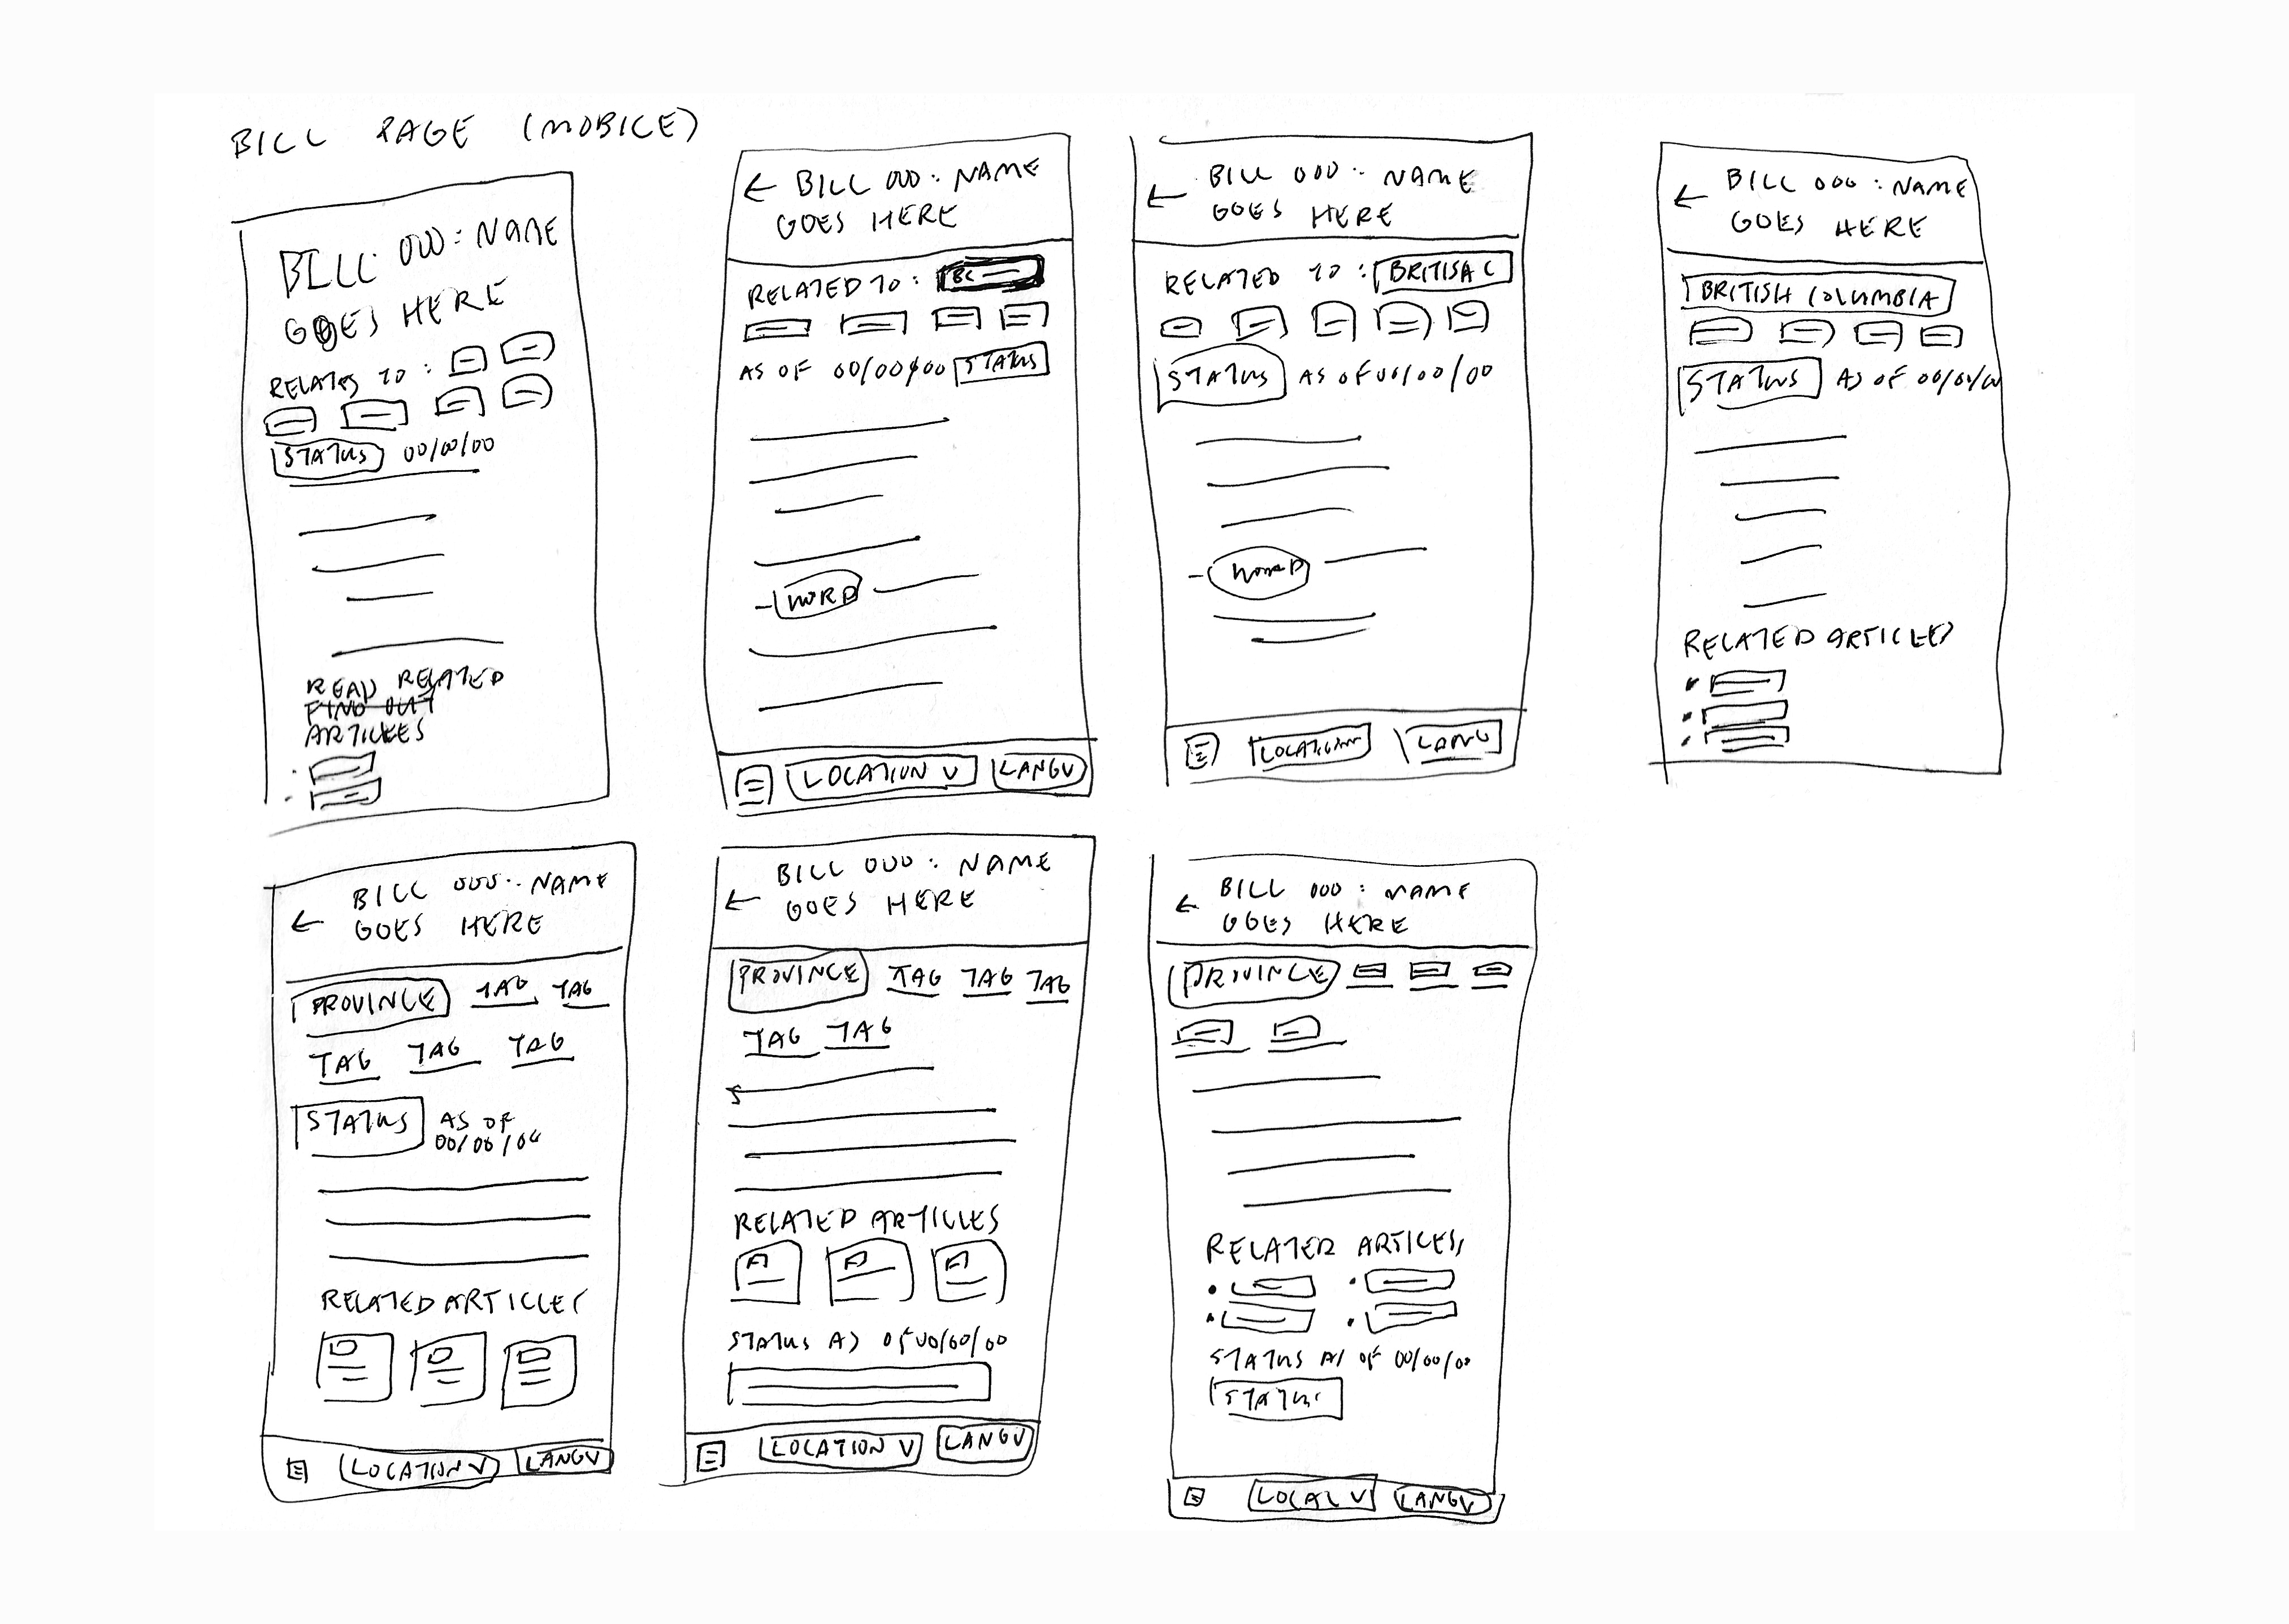 BILL PAGE (MOBILE)
BILL 000: NAME
GOES HERE
RELATES TO:
STATUS 00/00/00
READ RELATED
FIND OUT
ARTICLES
← BILL 000: NAME
GOES HERE
RELATED TO: BC
AS OF 00/00/00 STATUS
WORD
LOCATION V LANG V
← BILL 000: NAME
GOES HERE
RELATED TO: BRITISH C
STATUS AS OF 00/00/00
WORD
LOCATION LANG
← BILL 000: NAME
GOES HERE
BRITISH COLUMBIA
STATUS AS OF 00/00/00
RELATED ARTICLES
← BILL 000: NAME
GOES HERE
PROVINCE TAG TAG
TAG TAG TAG
STATUS AS OF
00/00/00
RELATED ARTICLES
LOCATION V LANG V
← BILL 000: NAME
GOES HERE
PROVINCE TAG TAG TAG
TAG TAG
RELATED ARTICLES
STATUS AS OF 00/00/00
LOCATION V LANG V
← BILL 000: NAME
GOES HERE
PROVINCE
RELATED ARTICLES
STATUS AS OF 00/00/00
STATUS
LOCAL V LANG V